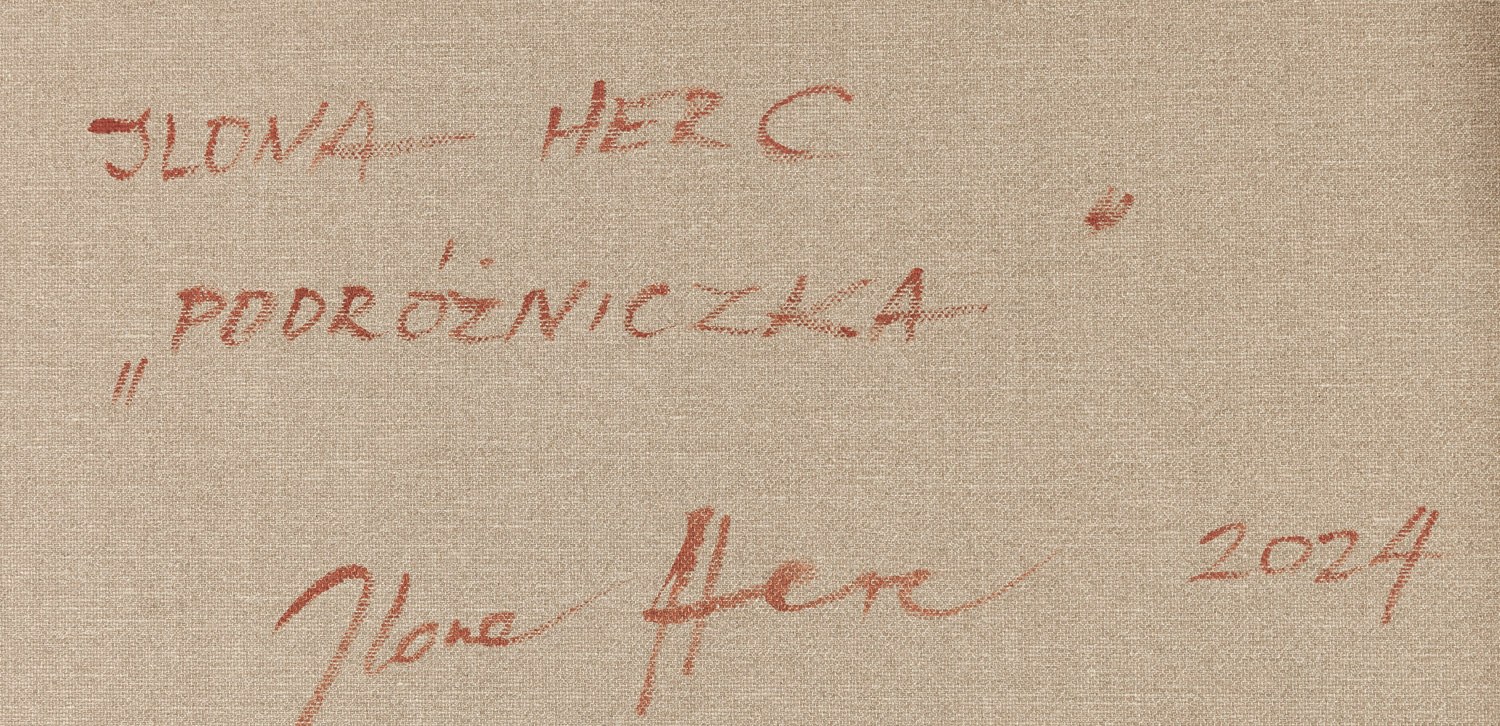 ILONA HERC
„PODRÓŻNICZKA”
Ilona Herc 2024